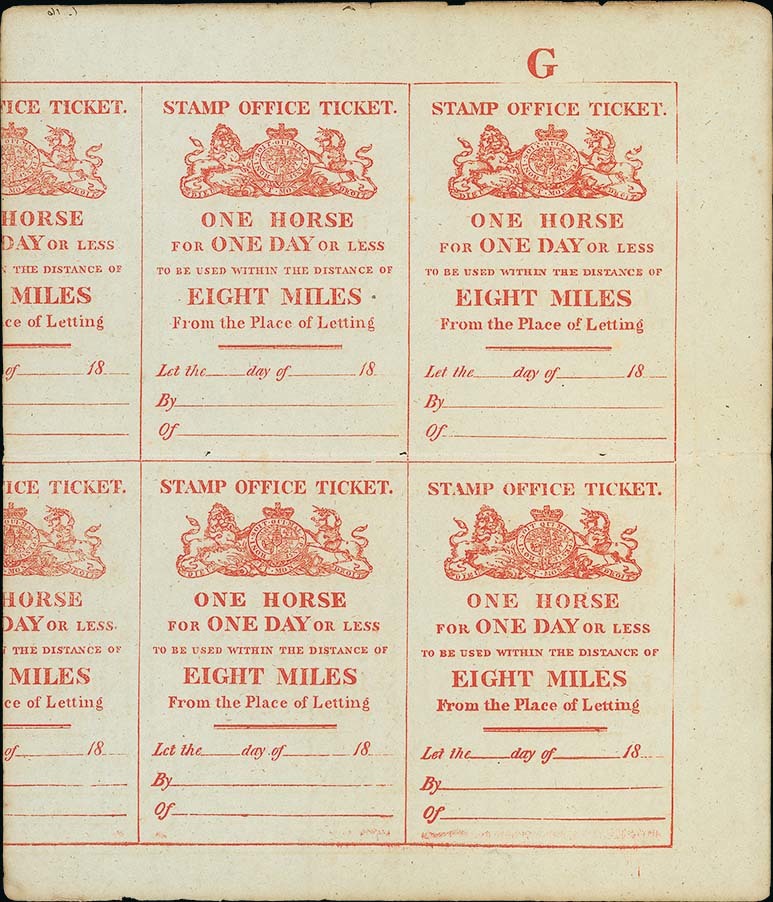 G
ICE TICKET.
HORSE
DAY OR LESS
THE DISTANCE OF
MILES
ce of Letting
of 18
STAMP OFFICE TICKET.
ONE HORSE
FOR ONE DAY OR LESS
TO BE USED WITHIN THE DISTANCE OF
EIGHT MILES
From the Place of Letting
Let the day of 18
By
Of
STAMP OFFICE TICKET.
ONE HORSE
FOR ONE DAY OR LESS
TO BE USED WITHIN THE DISTANCE OF
EIGHT MILES
From the Place of Letting
Let the day of 18
By
Of
ICE TICKET.
HORSE
DAY OR LESS.
THE DISTANCE OF
MILES
ce of Letting
of 18
STAMP OFFICE TICKET.
ONE HORSE
FOR ONE DAY OR LESS
TO BE USED WITHIN THE DISTANCE OF
EIGHT MILES
From the Place of Letting
Let the day of 18
By
Of
STAMP OFFICE TICKET.
ONE HORSE
FOR ONE DAY OR LESS
TO BE USED WITHIN THE DISTANCE OF
EIGHT MILES
From the Place of Letting
Let the day of 18
By
Of